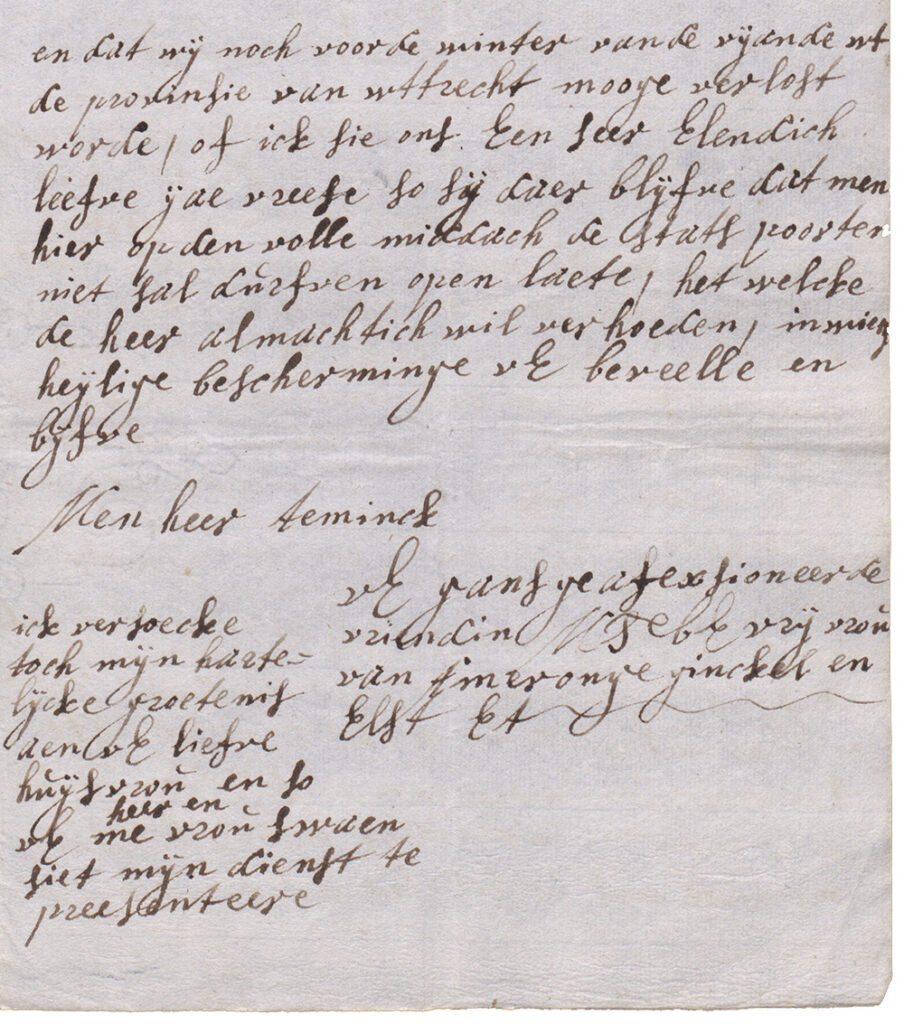 en dat wij noch voorde winter vande vijande wt
de provinsie van wttrecht mooge verlost
worde, of ick sie ons Een seer Elendich
leefve jae vreese so sij daer blijfve dat men
hier op den volle middach de stats poorten
niet sal durfven open laete, het welcke
de heer almachtich wil verhoeden, in wiens
heijlige bescherminge vE beveelle en
blijfve
Men heer teminck
vE gans geafexsioneerde
vriendin
vrij vrou
van Ameronge ginckel en
Elst Et
ick versoecke
toch mijn harte=
lijcke groetenis
aen vE liefve
huijsvrou en so
heer en
vE me vrou swaen
siet mijn dienst te
preesenteere